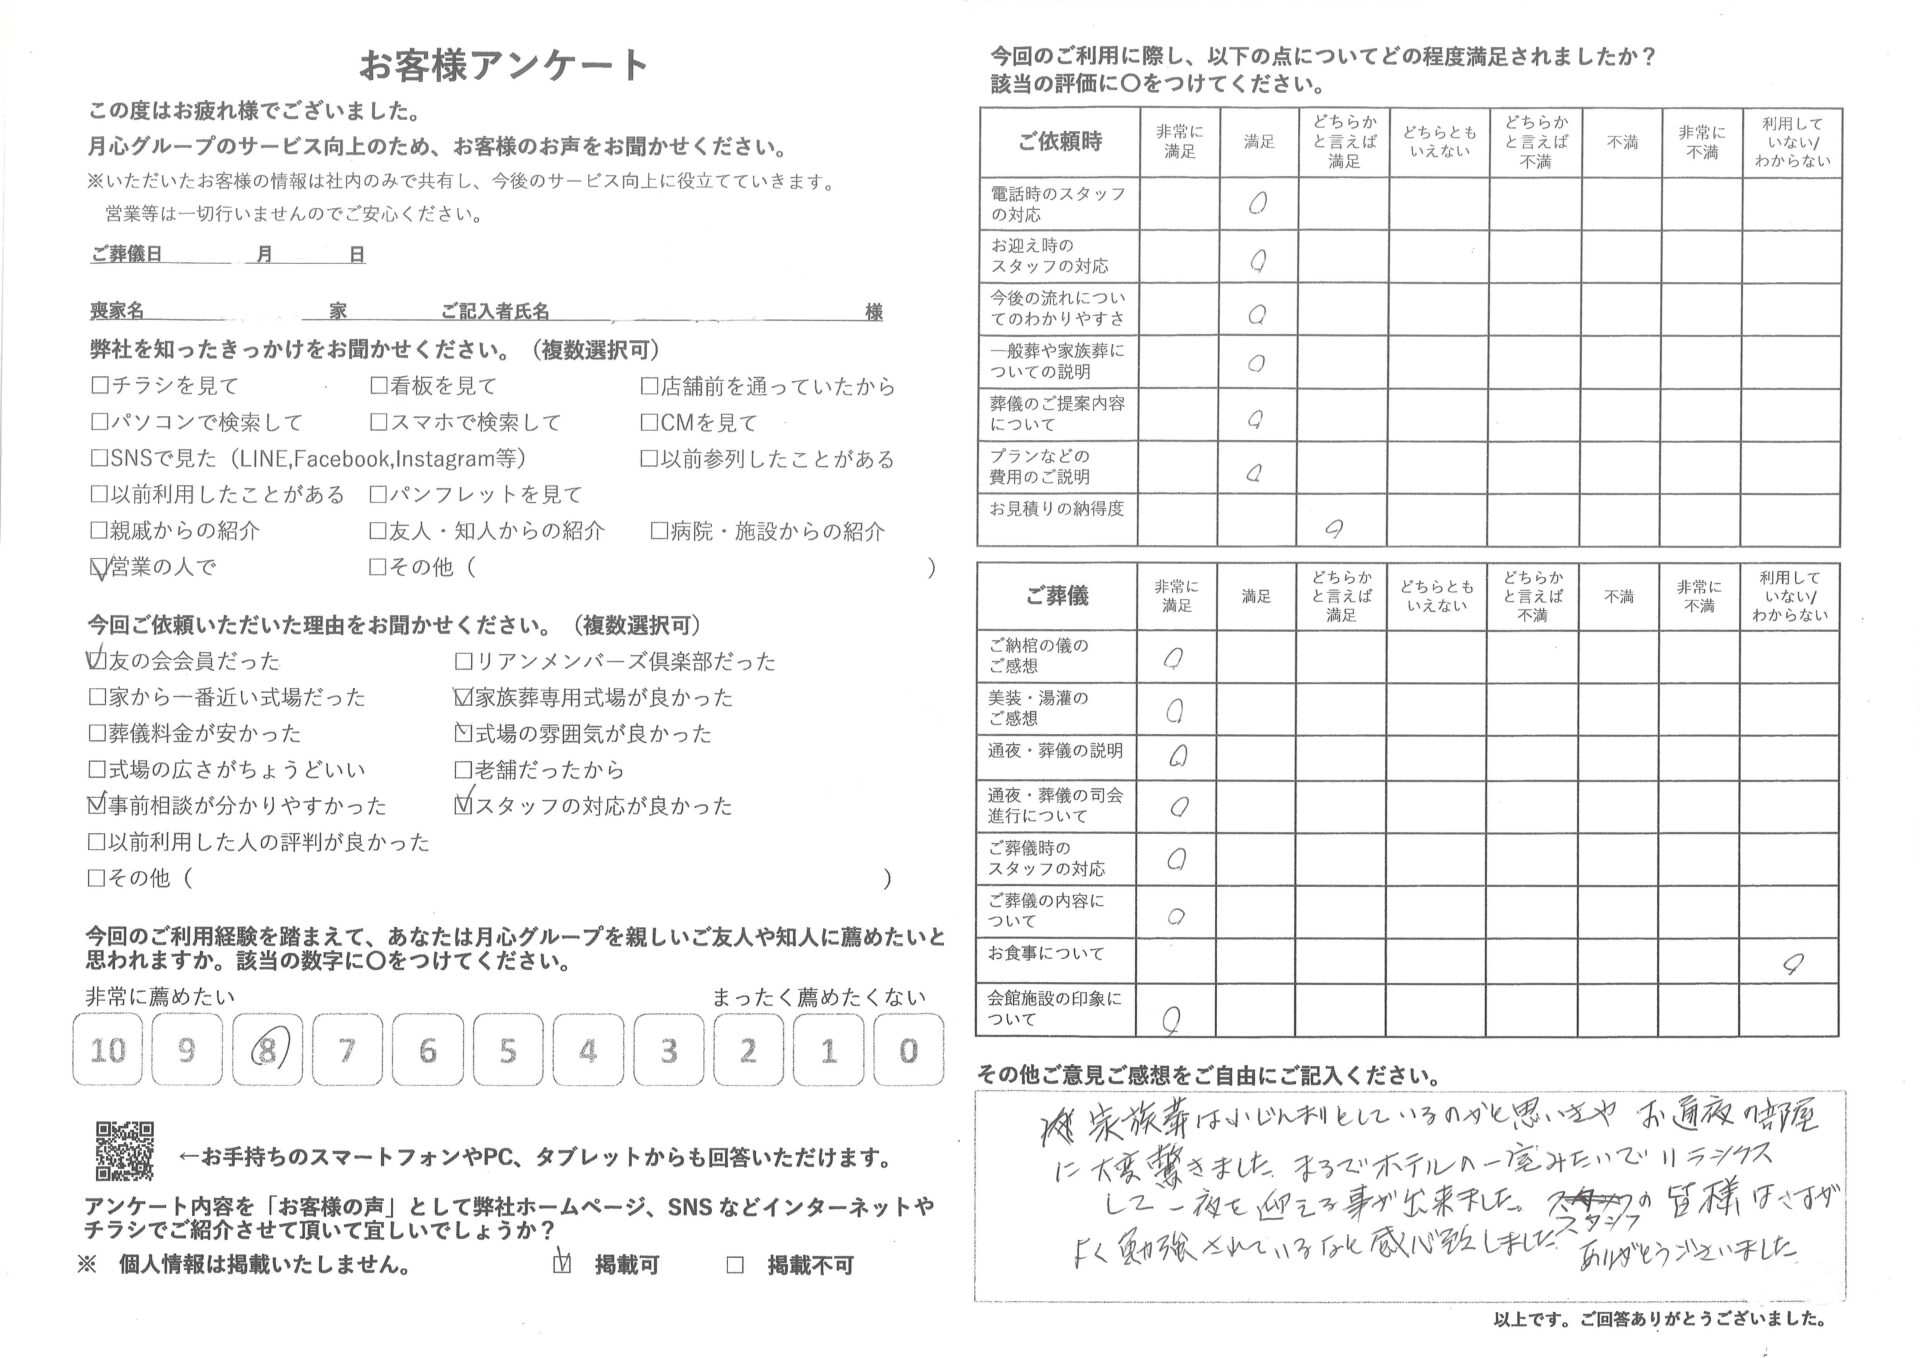 お客様アンケート
この度はお疲れ様でございました。
月心グループのサービス向上のため、お客様のお声をお聞かせください。
※いただいたお客様の情報は社内のみで共有し、今後のサービス向上に役立てていきます。
営業等は一切行いませんのでご安心ください。
ご葬儀日 月 日
喪家名 家 ご記入者氏名 様
弊社を知ったきっかけをお聞かせください。（複数選択可）
□チラシを見て □看板を見て □店舗前を通っていたから
□パソコンで検索して □スマホで検索して □CMを見て
□SNSで見た（LINE,Facebook,Instagram等） □以前参列したことがある
□以前利用したことがある □パンフレットを見て
□親戚からの紹介 □友人・知人からの紹介 □病院・施設からの紹介
☑営業の人で □その他（ ）
今回ご依頼いただいた理由をお聞かせください。（複数選択可）
☑友の会会員だった □リアンメンバーズ倶楽部だった
□家から一番近い式場だった ☑家族葬専用式場が良かった
□葬儀料金が安かった ☑式場の雰囲気が良かった
□式場の広さがちょうどいい □老舗だったから
☑事前相談が分かりやすかった ☑スタッフの対応が良かった
□以前利用した人の評判が良かった
□その他（ ）
今回のご利用経験を踏まえて、あなたは月心グループを親しいご友人や知人に薦めたいと
思われますか。該当の数字に〇をつけてください。
非常に薦めたい まったく薦めたくない
10 9 8 7 6 5 4 3 2 1 0
←お手持ちのスマートフォンやPC、タブレットからも回答いただけます。
アンケート内容を「お客様の声」として弊社ホームページ、SNSなどインターネットや
チラシでご紹介させて頂いて宜しいでしょうか？
※ 個人情報は掲載いたしません。 ☑ 掲載可 □ 掲載不可
今回のご利用に際し、以下の点についてどの程度満足されましたか？
該当の評価に〇をつけてください。
ご依頼時 非常に満足 満足 どちらかと言えば満足 どちらともいえない どちらかと言えば不満 不満 非常に不満 利用していない/わからない
電話時のスタッフ
の対応 〇
お迎え時の
スタッフの対応 〇
今後の流れについ
てのわかりやすさ 〇
一般葬や家族葬に
ついての説明 〇
葬儀のご提案内容
について 〇
プランなどの
費用のご説明 〇
お見積りの納得度 〇
ご葬儀 非常に満足 満足 どちらかと言えば満足 どちらともいえない どちらかと言えば不満 不満 非常に不満 利用していない/わからない
ご納棺の儀の
ご感想 〇
美装・湯灌の
ご感想 〇
通夜・葬儀の説明 〇
通夜・葬儀の司会
進行について 〇
ご葬儀時の
スタッフの対応 〇
ご葬儀の内容に
ついて 〇
お食事について 〇
会館施設の印象に
ついて 〇
その他ご意見ご感想をご自由にご記入ください。
家族葬は小じんまりとしているのかと思いきや お通夜の部屋
に大変驚きました。まるでホテルの一室みたいでリラックス
して一夜を迎える事が出来ました。スタッフの皆様はさすが
よく勉強されているなと感心致しました。
ありがとうございました
以上です。ご回答ありがとうございました。